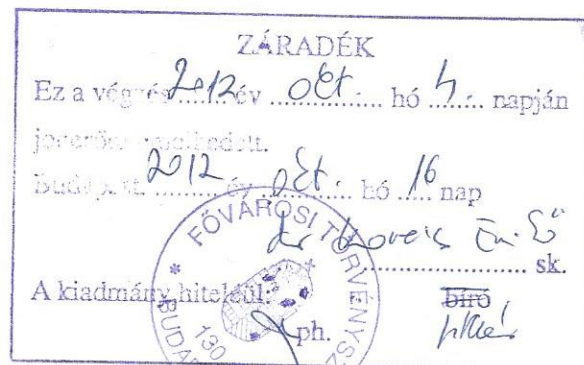 ZÁRADÉK
Ez a végzés 2012 év okt. hó 4. napján
jogerőre emelkedett.
Budapest. 2012 év okt. hó 16 nap
dr
sk.
A kiadmány hiteléül:
bíró
ph.
* FŐVÁROSI TÖRVÉNYSZ
* BUDA
130